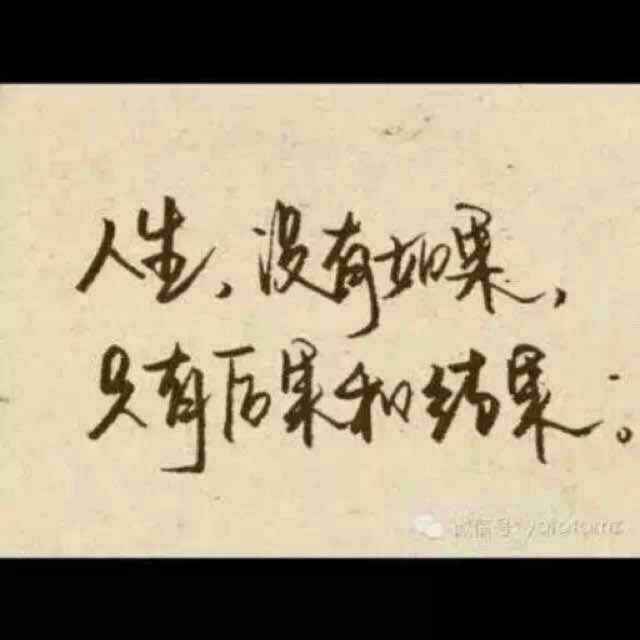 人生，没有如果，
只有后果和结果。
微信号: